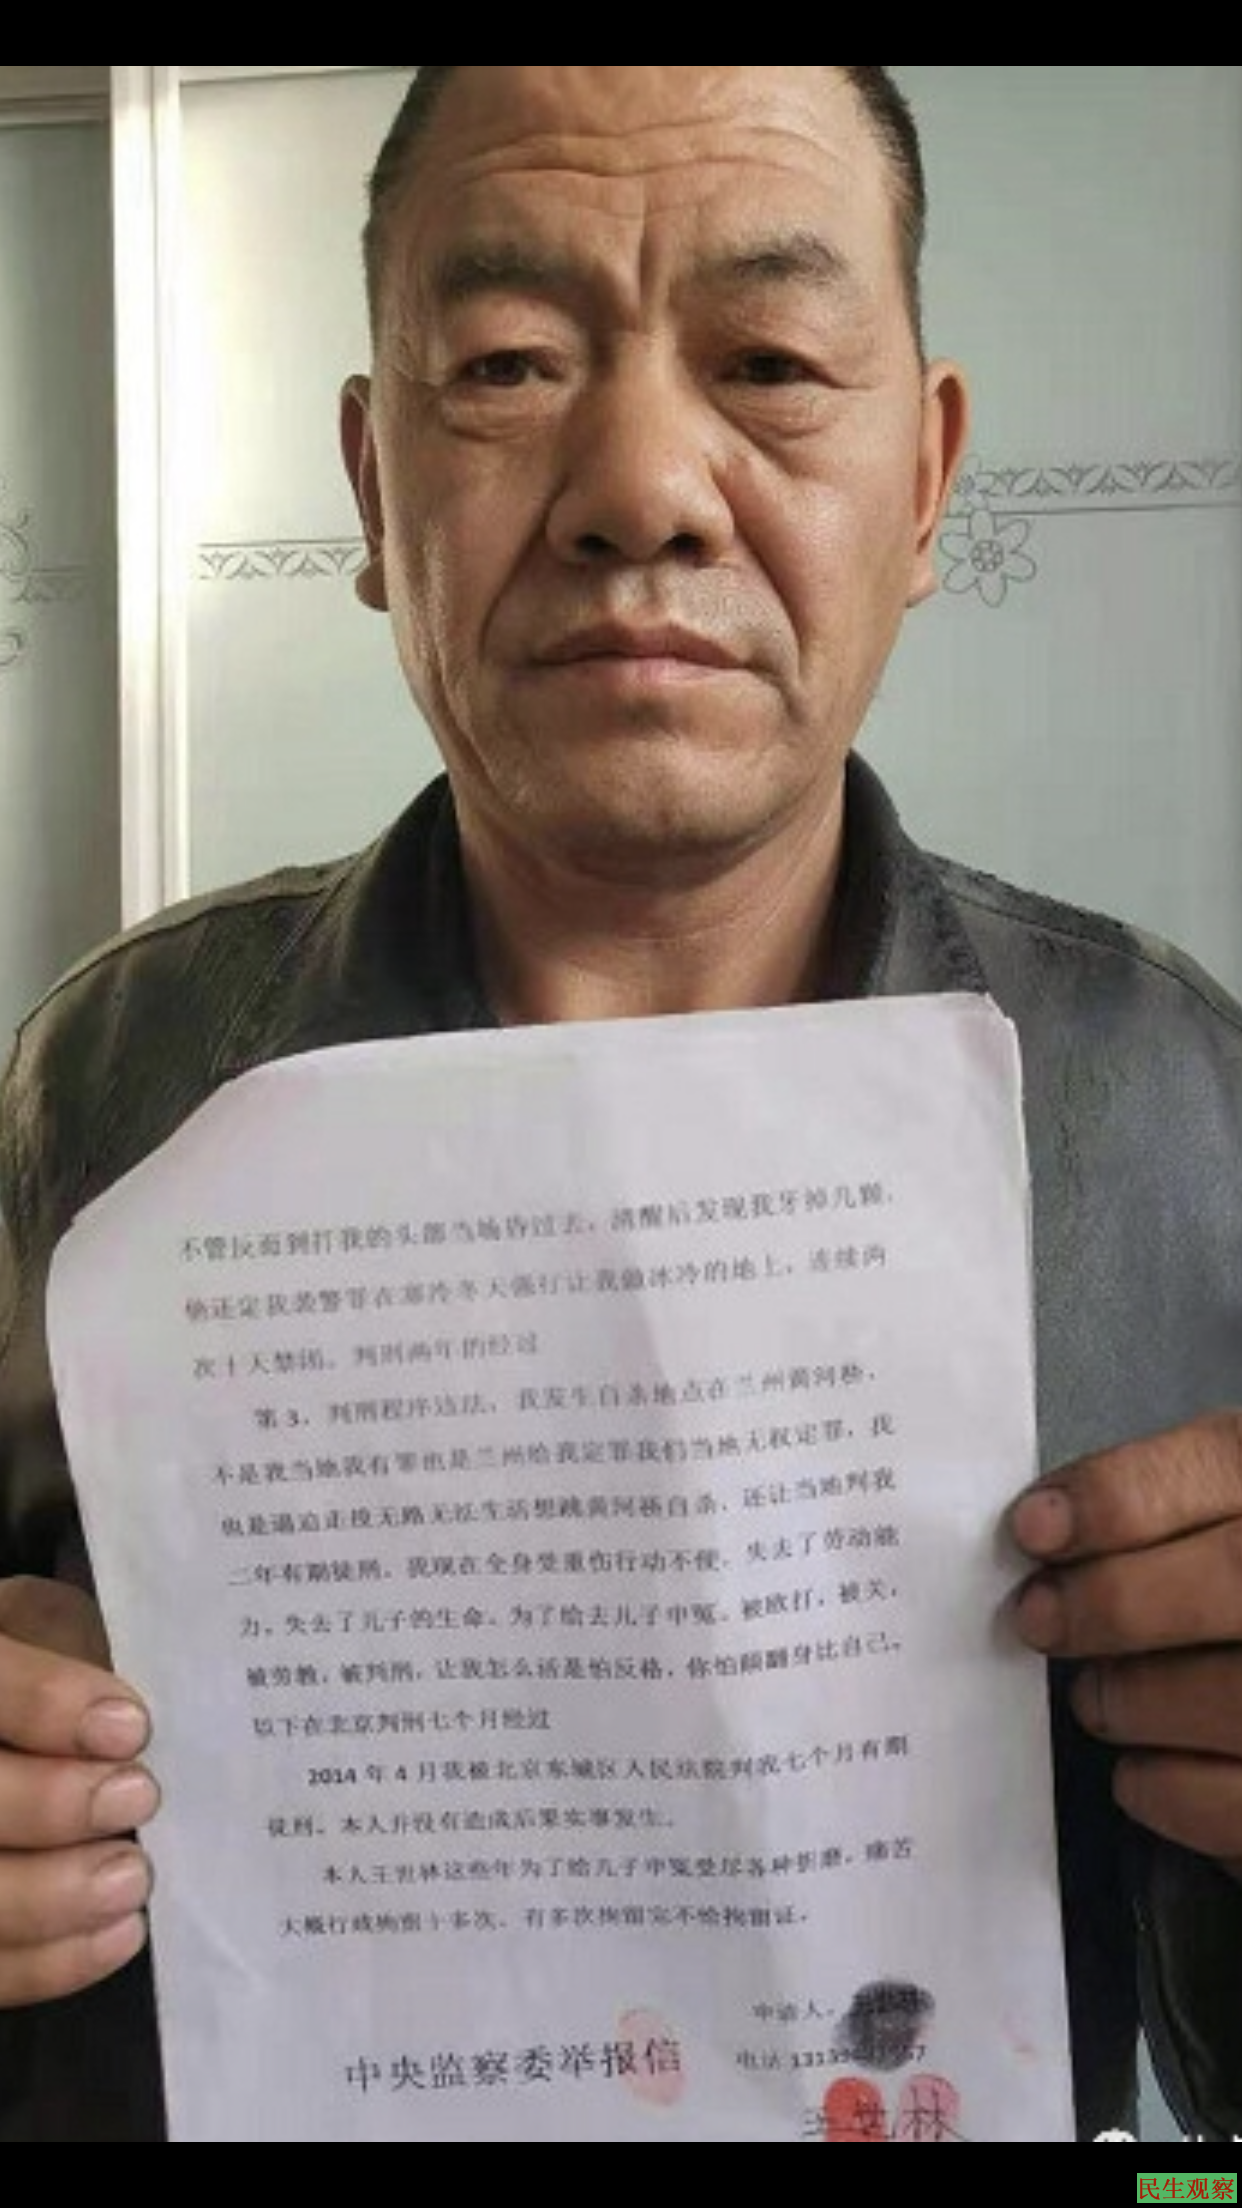 不管反而到打我的头部当场昏过去，清醒后发现我牙掉几颗，
他还定我袭警罪在寒冷冬天强行让我做冰冷的地上，连续两
次十天禁闭。判刑两年的经过
第3，判刑程序违法，我发生自杀地点在兰州黄河桥，
不是我当地我有罪也是兰州给我定罪我们当地无权定罪，我
也是逼迫走投无路无法生活想跳黄河桥自杀，还让当地判我
二年有期徒刑。我现在全身受重伤行动不便，失去了劳动能
力，失去了儿子的生命。为了给去儿子申冤，被欧打，被关，
被劳教，被判刑，让我怎么活是怕反格，你怕翻身比自己。
以下在北京判刑七个月经过
2014年4月我被北京东城区人民法院判我七个月有期
徒刑。本人并没有造成后果实事发生。
本人王世林这些年为了给儿子申冤受尽各种折磨，痛苦
大概行政拘留十多次，有多次拘留完不给拘留证。
申请人：
电话
中央监察委举报信
王世林
民生观察